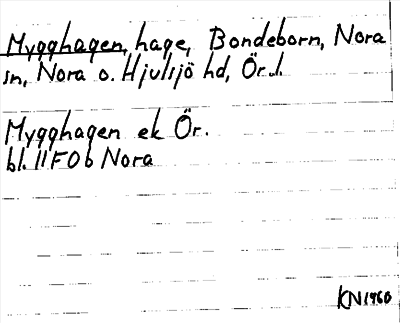 Mygghagen, hage, Bondeborn, Nora
sn, Nora o. Hjulsjö hd, Ör.l.
Mygghagen ek Ör.
bl. 11F0b Nora
KN1960